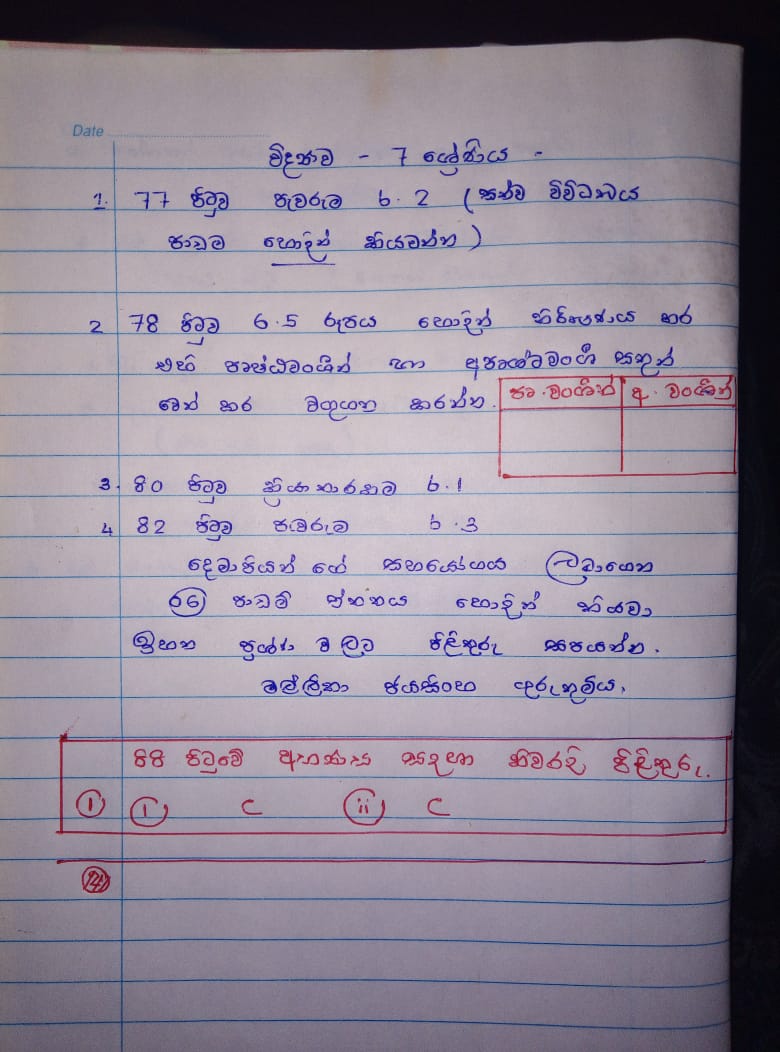 Date
විද්‍යාව - 7 ශ්‍රේණිය -
1. 77 පිටුව පැවරුම 6.2 (සත්ව විවිධත්වය
පාඩම හොඳින් කියවන්න)
2 78 පිටුව 6.5 රූපය හොඳින් නිරීක්ෂණය කර
එහි පෘෂ්ඨවංශීන් හා අපෘෂ්ඨවංශී සතුන්
වෙන් කර වගුගත කරන්න.
පෘ. වංශීන් අ. වංශීන්
3. 80 පිටුව ක්‍රියාකාරකම 6.1
4 82 පිටුව පැවරුම 6.3
දෙමාපියන් ගේ සහයෝගය ලබාගෙන
06 පාඩම් ඒකකය හොඳින් කියවා
ඉහත ප්‍රශ්න වලට පිළිතුරු සපයන්න.
මල්ලිකා ජයසිංහ ගුරුතුමිය.
88 පිටුවේ අභ්‍යාස සඳහා නිවරදි පිළිතුරු.
1 i C ii C